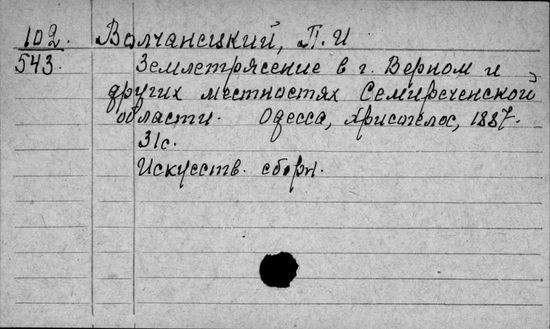 102. Волчанецкий, П. И
543. Землетрясение в г. Верном и
других местностях Семиреченской
области. Одесса, Хрисогелос, 1887.
31с.
Искусств. сборн.